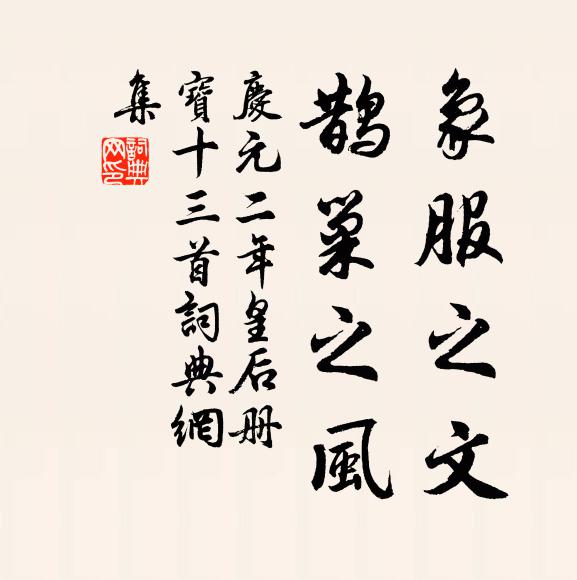 象服之文
鹊巢之風
慶元二年皇后册
寶十三首詞典網
集
詞典
网印